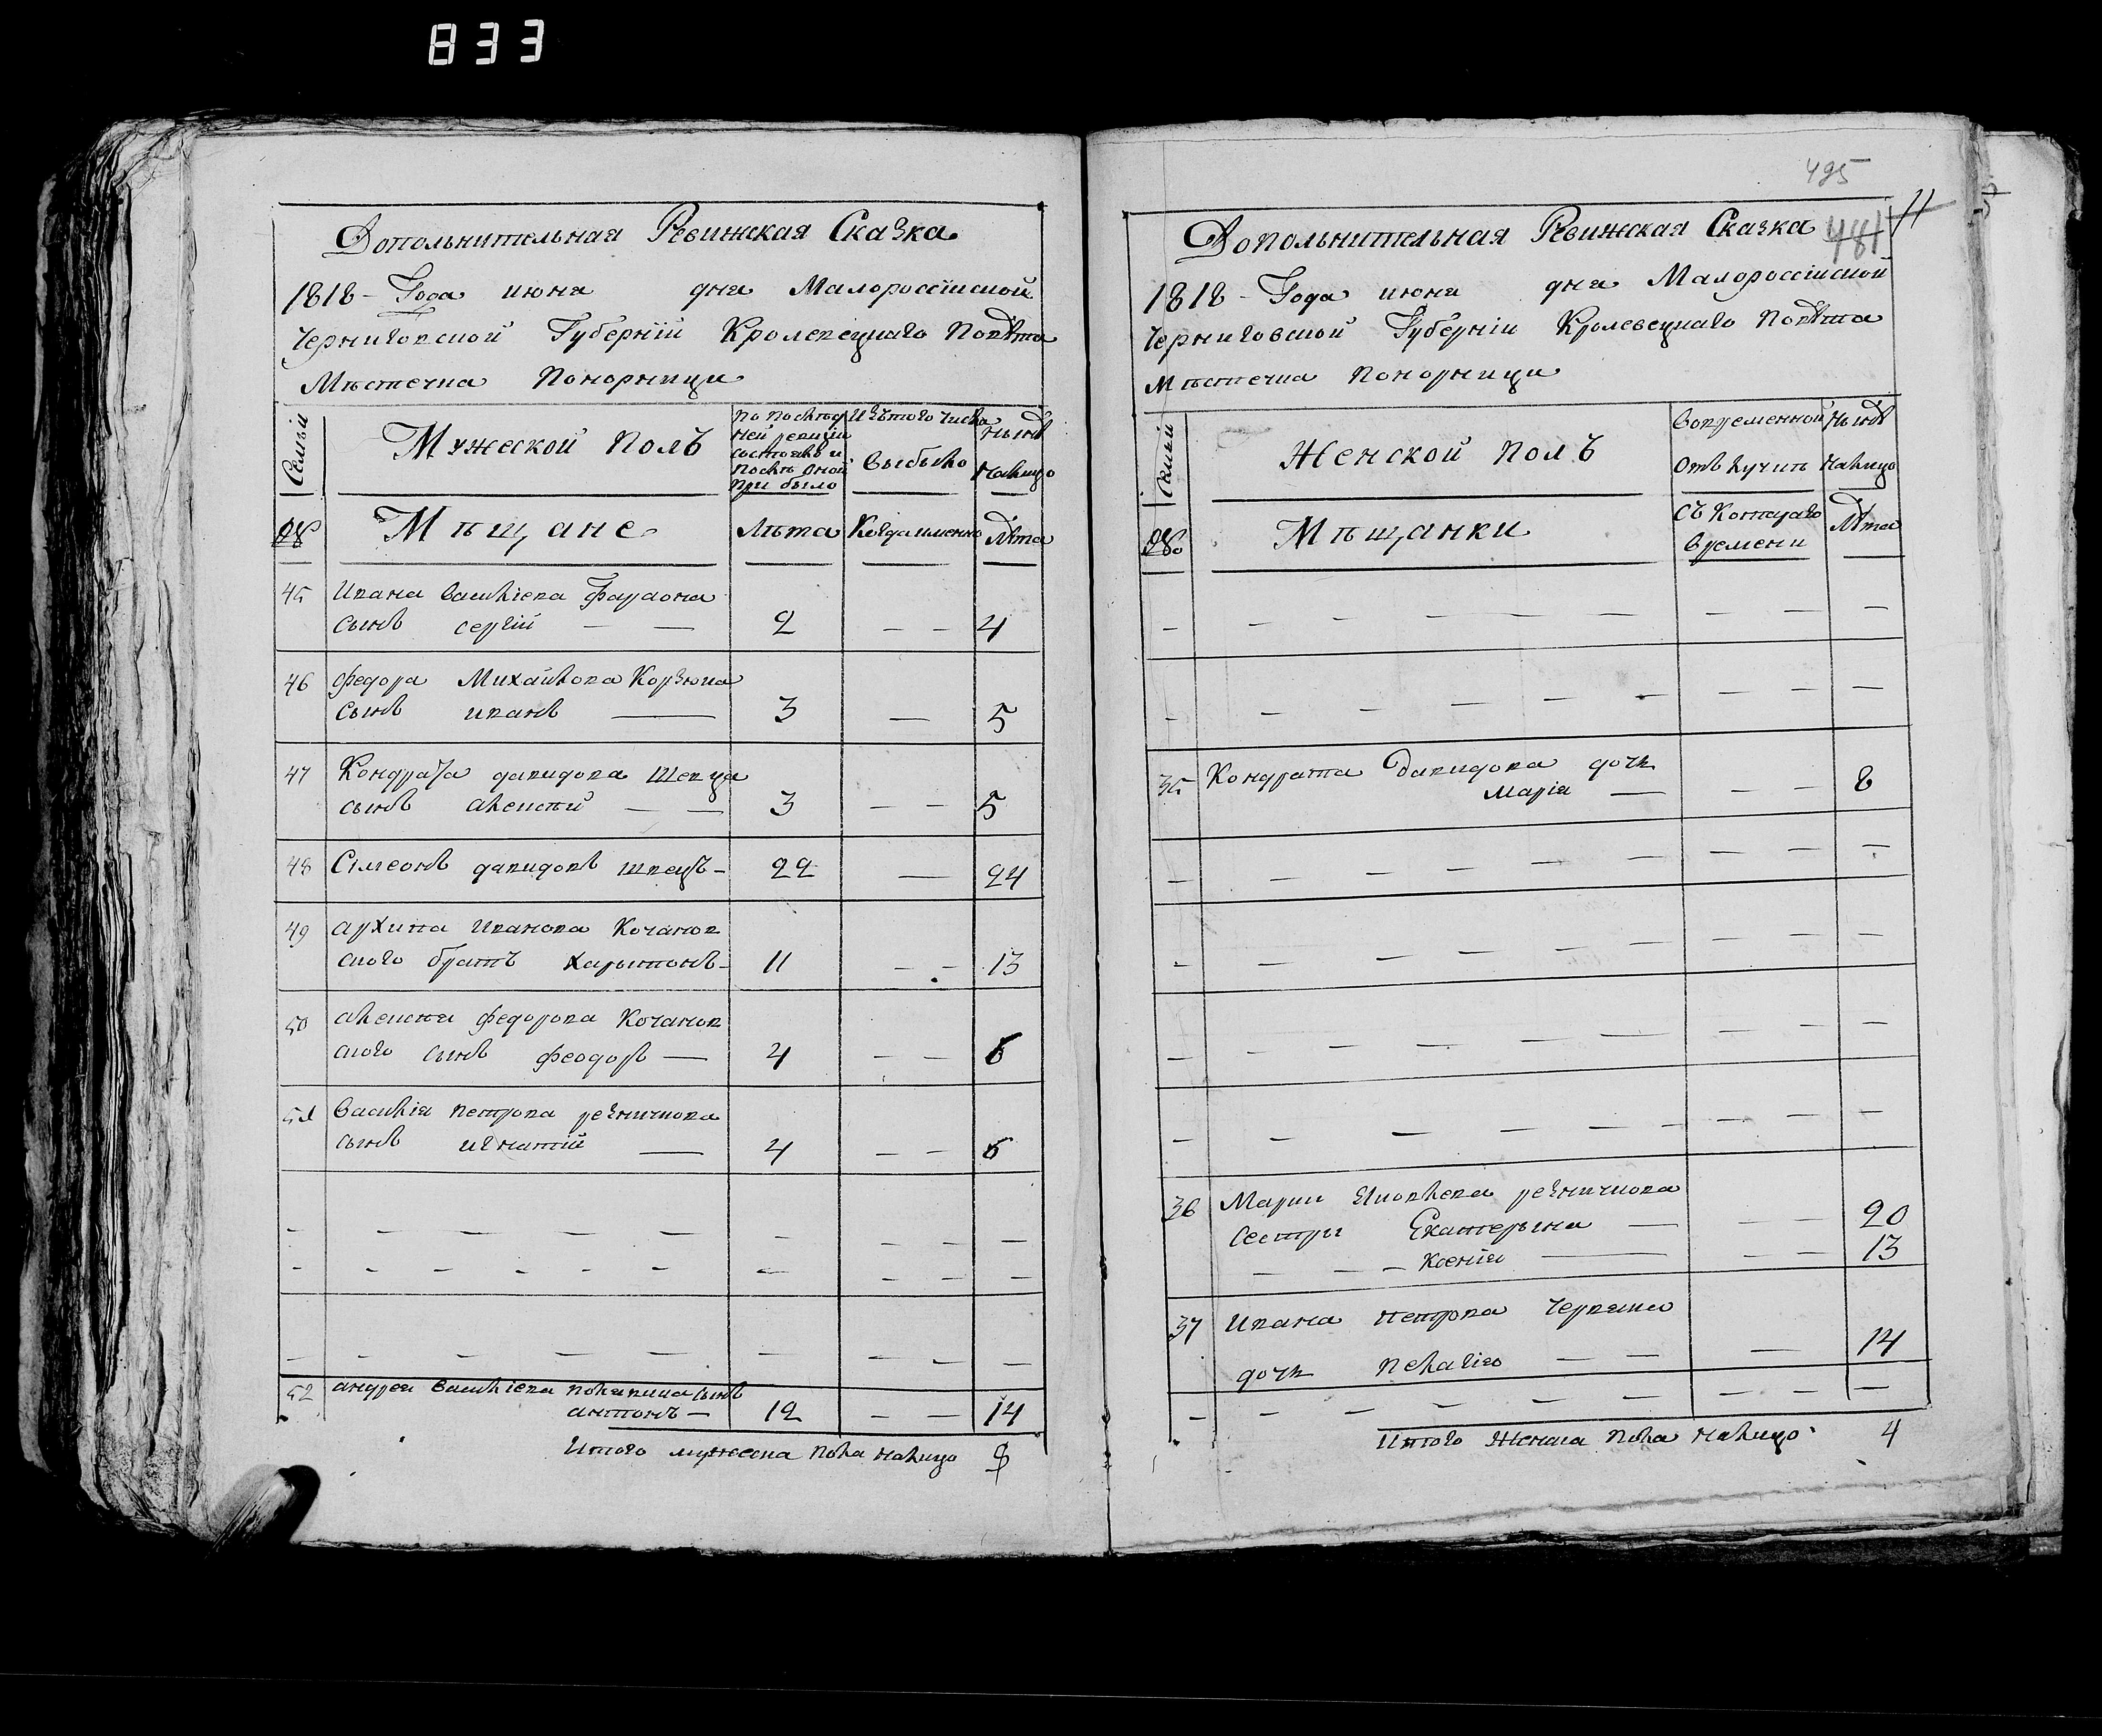 833
Дополнительная Ревижская Сказка
1818 - Года июня дня Малороссійской
Черниговской Губерніи Кролевецкаго Повѣта
Мѣстечка Понорници
Семьи
Мужеской полъ
По послѣд
ней ревизіи
состояло и
послѣ оной
при было
Изътого числа
выбыло
нынѣ
налицо
№
Мѣщане
Лѣта
Когда именно
Лѣта
45 Ивана василіева Фараона
сынъ сергій — — 2 — — 4
46 Федора Михайлова Корзюка
сынъ иванъ — 3 — 5
47 Кондрата давидова Шевца
сынъ алексѣй — — 3 — — 5
48 Симеонъ давидовъ швецъ - 22 — 24
49 архипа иванова Кочанов
ского братъ харитонъ - 11 — — 13
50 алексѣя федорова Кочанов
ского сынъ феодоръ — 4 — — 6
51 василія петрова резничкова
сынъ игнатій — 4 — — 6
— — — — — — — — —
- - - - - - — — — —
— — — — — — — — —
52 андрея василіева полякина сынъ
антонъ — 12 — — 14
Итого мужеска пола налицо 8
495
481
11
Дополнительная Ревижская Сказка
1818 - Года июня дня Малороссійской
Черниговской Губерніи Кролевецкаго Повѣта
Мѣстечка Понорници
Семьи
Женской полъ
Вовременной
отлучкѣ
Нынѣ
налицо
№
Мѣщанки
Съ Которагo
времени
Лѣта
— — — — — — — — —
— — — — — — — — —
35 Кондрата Давидова дочь
Марія — — — 8
— — — — — — — — —
— — — — — — — — —
— — — — — — — — —
— — — — — — — — —
36 Марии Яковлева резничкова
сестры Екатерина — — — 20
— — — Ксенія — — — 13
37 Ивана петрова Червяка
дочь Пелагія — — — 14
— — — — — — — — —
Итого Женска пола налицо 4